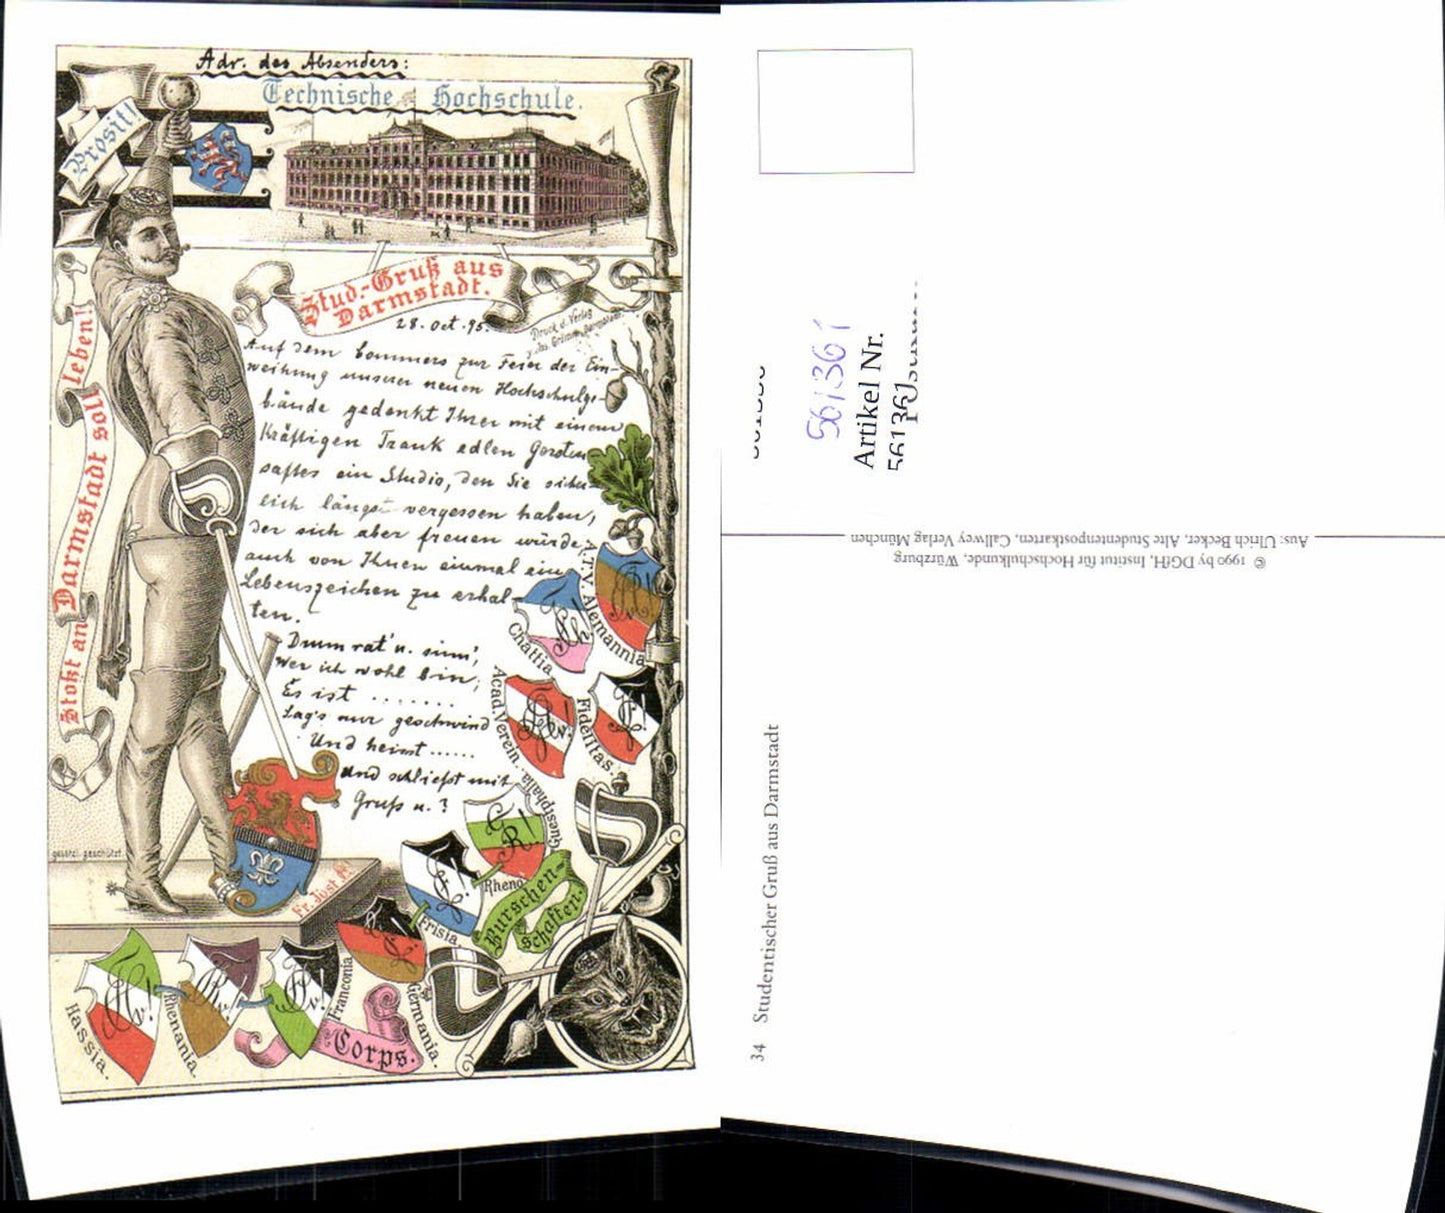 Adr. des Absenders:
Technische Hochschule.
Prosit!
Stud.-Gruß aus
Darmstadt.
28. Oct. 95.
Druck u. Verlag
Stoßt an Darmstadt soll leben!
Auf dem Commers zur Feier der Ein-
weihung unserer neuen Hochschulge-
bäude gedenkt Ihrer mit einem
kräftigen Trank edlen Gersten
saftes ein Studio, den Sie sicher-
lich längst vergessen haben,
der sich aber freuen würde,
auch von Ihnen einmal ein
Lebenszeichen zu erhal-
ten.
Drum rat' u. sinn',
Wer ich wohl bin,
Es ist .......
Sag's nur geschwind
Und heisst ......
Und schließt mit
Gruß u. ?
A.T.V. Alemannia
Chattia
Acad. Verein.
Fidelitas.
Rheno-Guestphalia
Frisia.
Burschen-
schaften.
Germania.
Franconia
Corps.
Rhenania.
Hassia.
gesetzl. geschützt.
Fr. Jost
561361
Artikel Nr.
561361
34 Studentischer Gruß aus Darmstadt
© 1990 by DGfH, Institut für Hochschulkunde, Würzburg
Aus: Ulrich Becker, Alte Studentenpostkarten, Callwey Verlag München